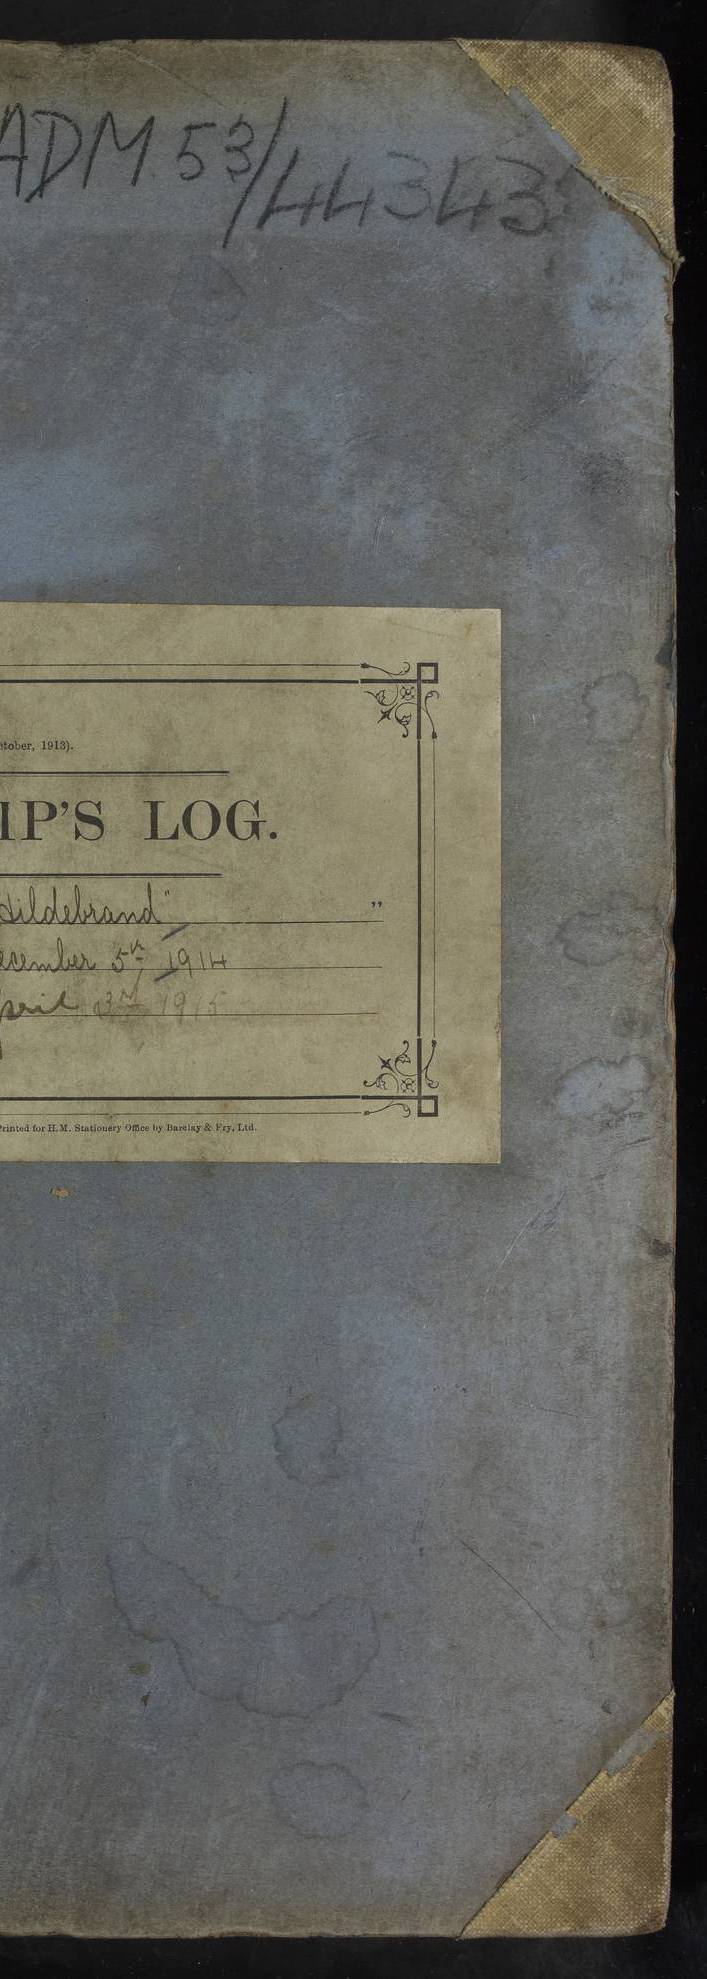 ADM 53/44343
ctober, 1913).
IP'S LOG.
Hildebrand" "
ecember 5th 1914
pril 3rd 1915
Printed for H.M. Stationery Office by Barclay & Fry, Ltd.